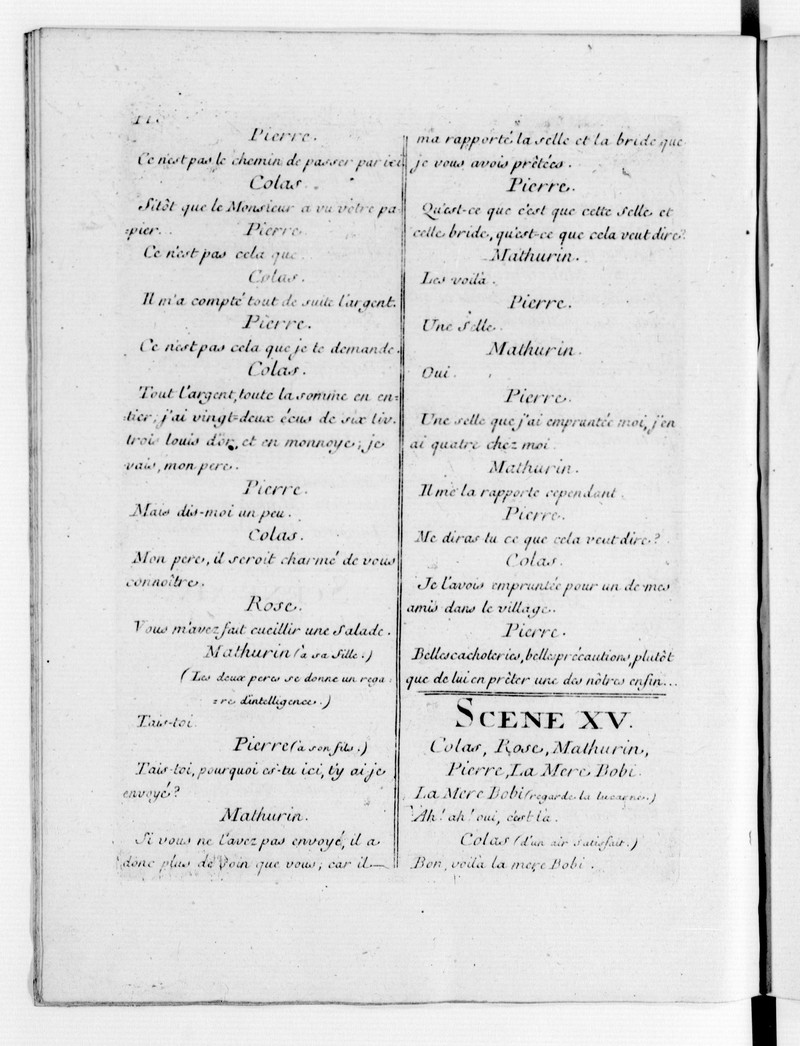 Pierre.
Ce n'est pas le chemin de passer par ici
Colas.
Sitôt que le Monsieur a vu votre pa-
=pier. Pierre.
Ce n'est pas cela que
Colas.
Il m'a compté tout de suite l'argent.
Pierre.
Ce n'est pas cela que je te demande.
Colas.
Tout l'argent, toute la somme en en=
tier; j'ai vingt-deux écus de six liv.
trois louis d'or, et en monnoye; je
vais, mon pere.
Pierre.
Mais dis-moi un peu.
Colas.
Mon pere, il seroit charmé de vous
connoître.
Rose.
Vous m'avez fait cueillir une Salade.
Mathurin (à sa fille.)
(Les deux peres se donne un rega-
=re d'intelligence.)
Tais-toi.
Pierre (à son fils.)
Tais-toi, pourquoi es-tu ici, t'y ai je
envoyé?
Mathurin.
Si vous ne l'avez pas envoyé, il a
donc plus de soin que vous; car il
ma rapporté la selle et la bride que
je vous avois prêtées.
Pierre.
Qu'est-ce que c'est que cette Selle et
celle bride, qu'est-ce que cela veut dire?
Mathurin.
Les voilà.
Pierre.
Une Selle.
Mathurin.
Oui.
Pierre.
Une selle que j'ai empruntée moi, j'en
ai quatre chez moi.
Mathurin.
Il me la rapporte cependant.
Pierre.
Me diras tu ce que cela veut dire?
Colas.
Je l'avois empruntée pour un de mes
amis dans le village.
Pierre.
Belles cachoteries, belles précautions, plutôt
que de lui en prêter une des nôtres enfin...
SCENE XV.
Colas, Rose, Mathurin,
Pierre, La Mere Bobi.
La Mere Bobi (regarde la lucagne.)
Ah! ah! oui, c'est là.
Colas (d'un air satisfait.)
Bon, voilà la mere Bobi.